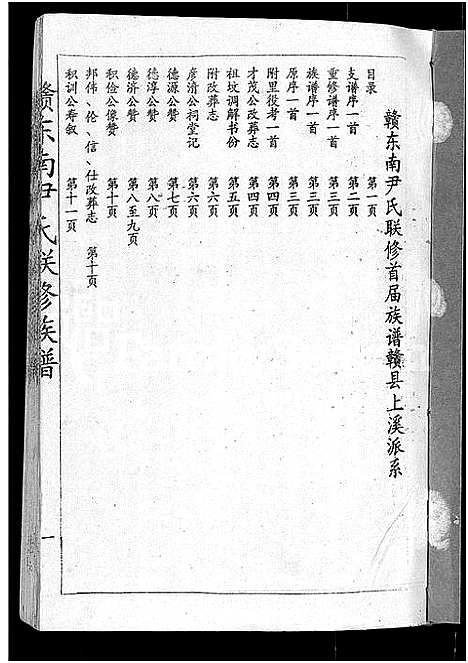 赣东南尹氏联修首届族谱赣县上溪派系
目录
支谱序一首 第一页
重修谱序一首 第二页
族谱序一首 第三页
原序一首 第三页
附里役考一首 第四页
才茂公改葬志 第四页
祖坟调解书份 第五页
附改葬志 第六页
彦清公祠堂记 第六页
德源公赞 第七页
德淳公赞 第八页
德济公赞 第八至九页
积俭公像赞 第十页
邦伟、伦、信、仕改葬志 第十页
积训公寿叙 第十一页
赣东南尹氏联修族谱
一